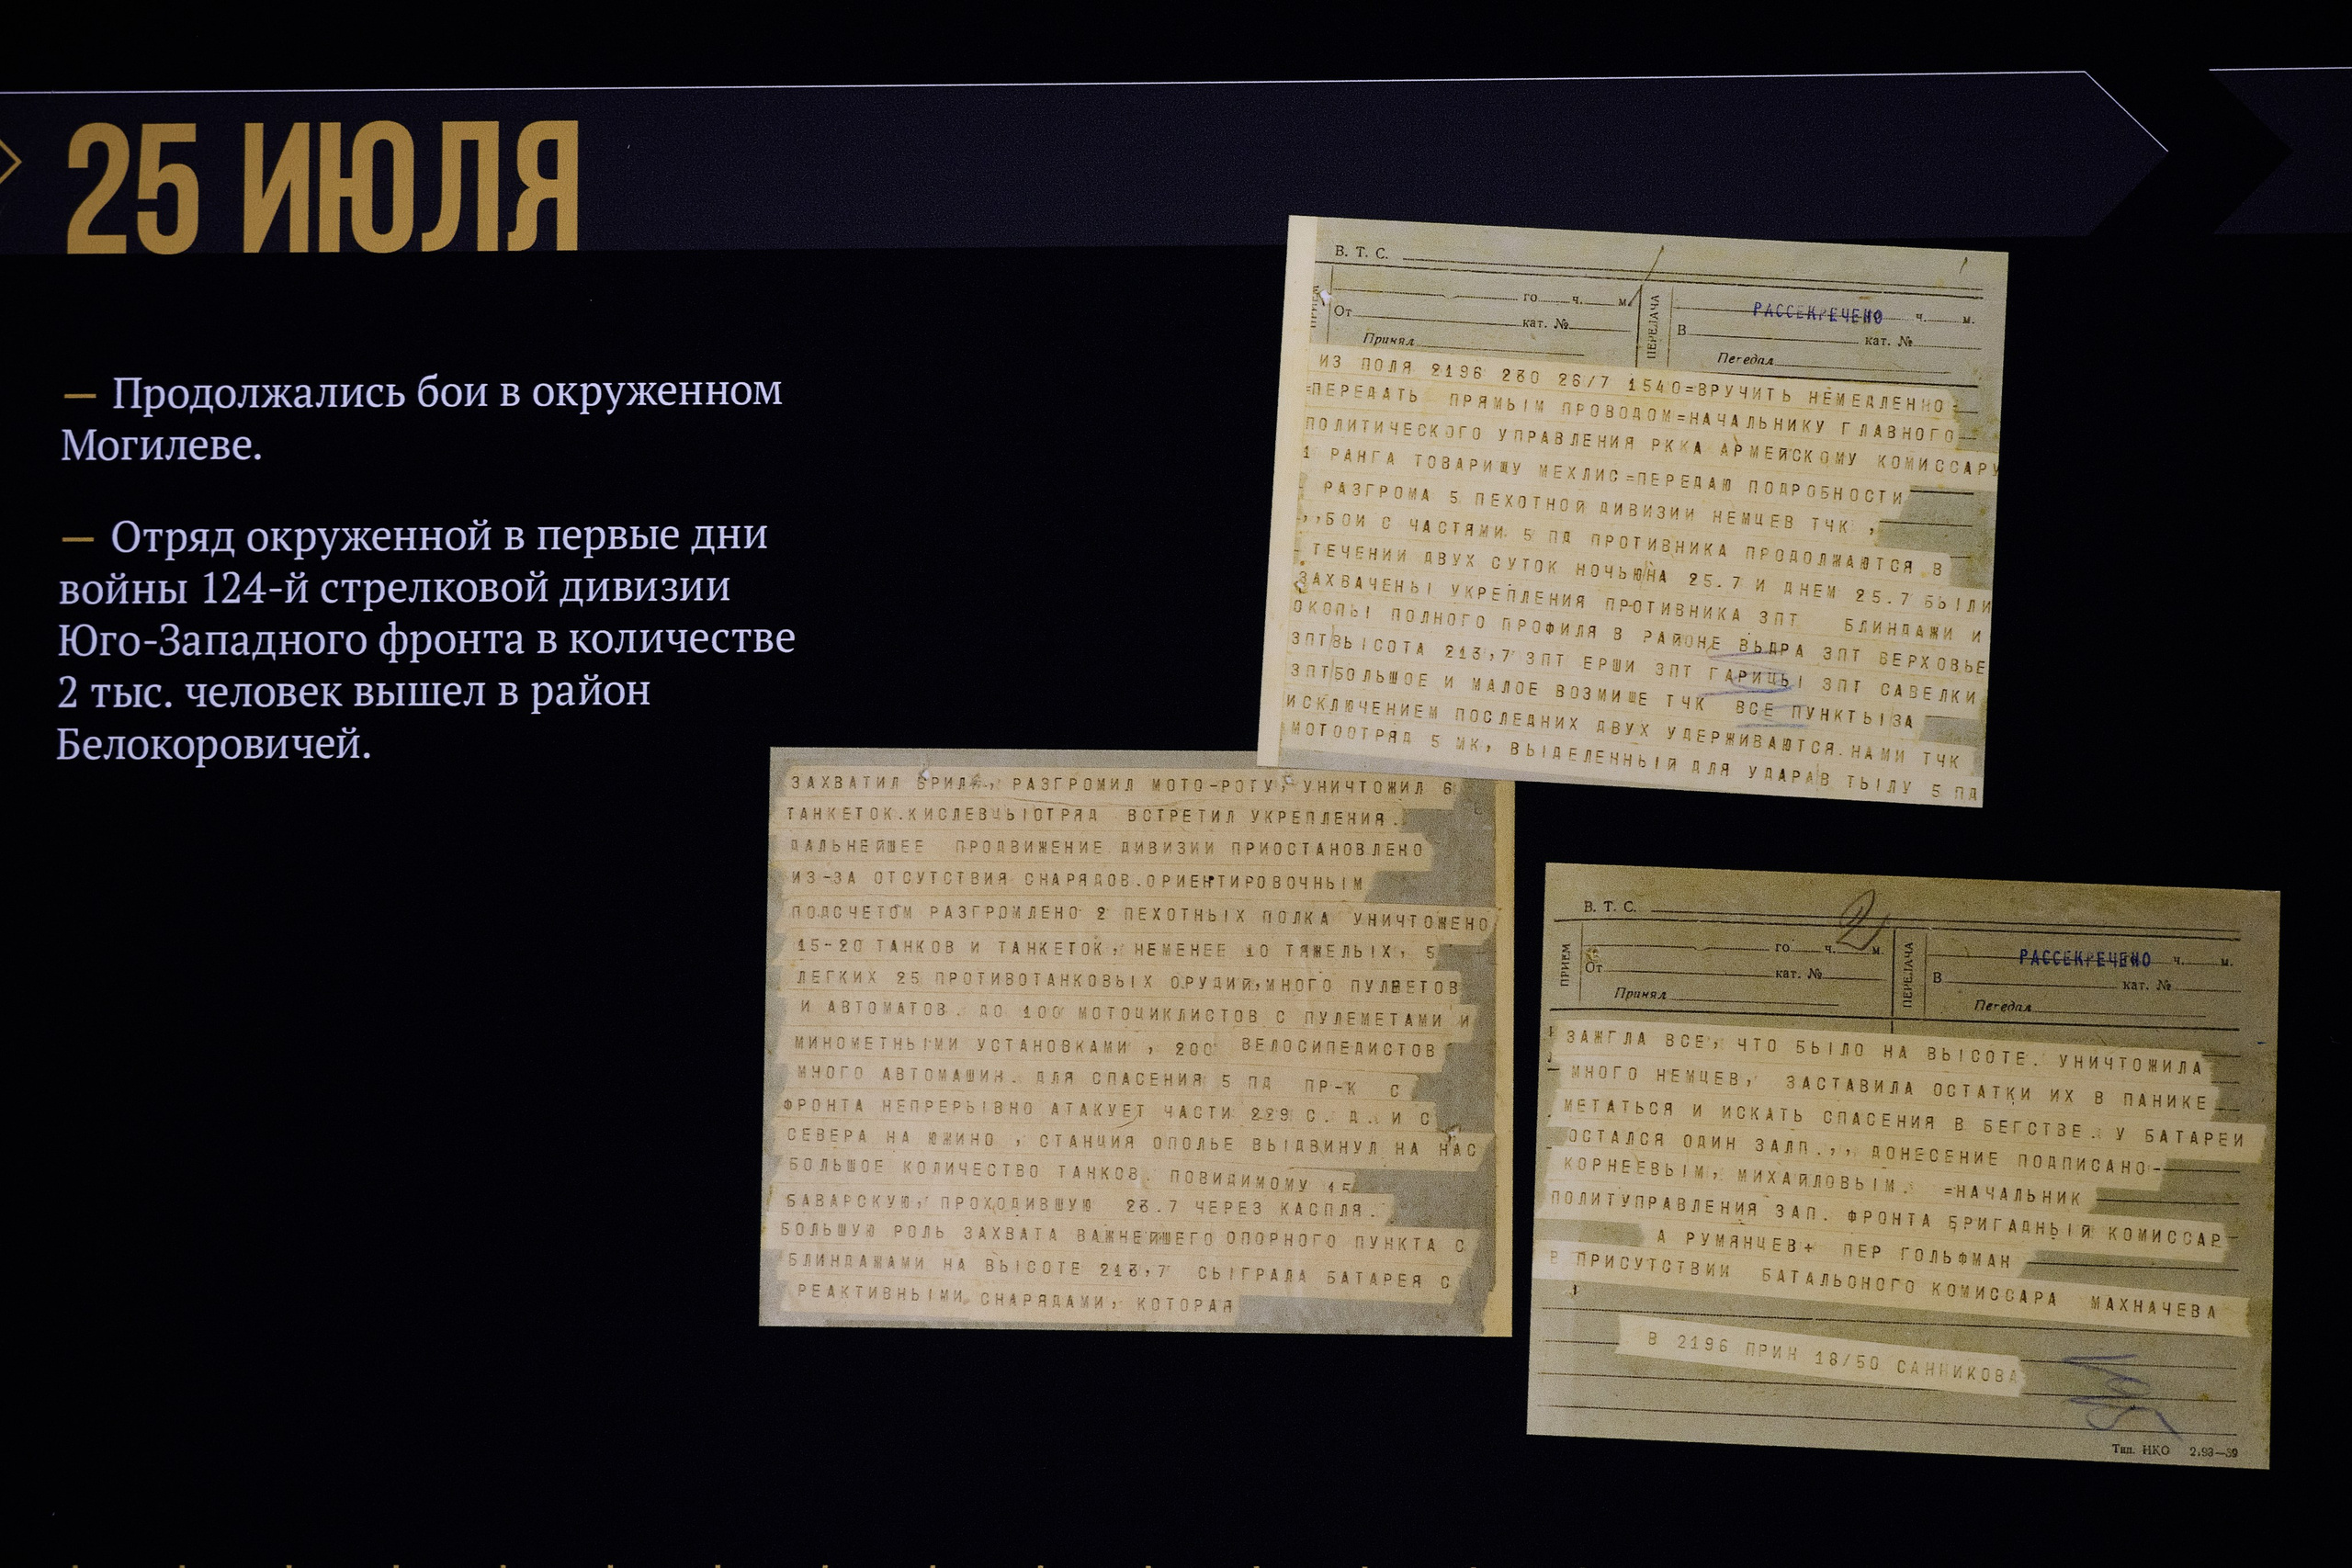 25 ИЮЛЯ
— Продолжались бои в окруженном
Могилеве.
— Отряд окруженной в первые дни
войны 124-й стрелковой дивизии
Юго-Западного фронта в количестве
2 тыс. человек вышел в район
Белокоровичей.
В. Т. С.
ПРИЕМ
го ч. м.
От кат. №
Принял
ПЕРЕДАЧА
РАССЕКРЕЧЕНО ч. м.
В кат. №
Передал
ИЗ ПОЛЯ 2196 230 26/7 1540=ВРУЧИТЬ НЕМЕДЛЕННО=
=ПЕРЕДАТЬ ПРЯМЫМ ПРОВОДОМ=НАЧАЛЬНИКУ ГЛАВНОГО
ПОЛИТИЧЕСКОГО УПРАВЛЕНИЯ РККА АРМЕЙСКОМУ КОМИССАРУ
1 РАНГА ТОВАРИЩУ МЕХЛИС=ПЕРЕДАЮ ПОДРОБНОСТИ
РАЗГРОМА 5 ПЕХОТНОЙ ДИВИЗИИ НЕМЦЕВ ТЧК ,
,,БОИ С ЧАСТЯМИ 5 ПД ПРОТИВНИКА ПРОДОЛЖАЮТСЯ В
ТЕЧЕНИИ ДВУХ СУТОК НОЧЬЮНА 25.7 И ДНЕМ 25.7 БЫЛИ
ЗАХВАЧЕНЫ УКРЕПЛЕНИЯ ПРОТИВНИКА ЗПТ БЛИНДАЖИ И
ОКОПЫ ПОЛНОГО ПРОФИЛЯ В РАЙОНЕ ВЫДРА ЗПТ ВЕРХОВЬЕ
ЗПТВЫСОТА 213,7 ЗПТ ЕРШИ ЗПТ ГАРИЦЫ ЗПТ САВЕЛКИ
ЗПТБОЛЬШОЕ И МАЛОЕ ВОЗМИЩЕ ТЧК ВСЕ ПУНКТЫЗА
ИСКЛЮЧЕНИЕМ ПОСЛЕДНИХ ДВУХ УДЕРЖИВАЮТСЯ.НАМИ ТЧК
МОТООТРЯД 5 МК, ВЫДЕЛЕННЫЙ ДЛЯ УДАРАВ ТЫЛУ 5 ПД
ЗАХВАТИЛ РАЗГРОМИЛ МОТО-РОТУ, УНИЧТОЖИЛ 6
ТАНКЕТОК.КИСЛЕВЦЫОТРЯД ВСТРЕТИЛ УКРЕПЛЕНИЯ.
ДАЛЬНЕЙШЕЕ ПРОДВИЖЕНИЕ ДИВИЗИИ ПРИОСТАНОВЛЕНО
ИЗ-ЗА ОТСУТСТВИЯ СНАРЯДОВ.ОРИЕНТИРОВОЧНЫМ
ПОДСЧЕТОМ РАЗГРОМЛЕНО 2 ПЕХОТНЫХ ПОЛКА УНИЧТОЖЕНО
15-20 ТАНКОВ И ТАНКЕТОК, НЕМЕНЕЕ 10 ТЯЖЕЛЫХ, 5
ЛЕГКИХ 25 ПРОТИВОТАНКОВЫХ ОРУДИЙ,МНОГО
И АВТОМАТОВ. ДО 100 МОТОЦИКЛИСТОВ С ПУЛЕМЕТАМИ И
МИНОМЕТНЫМИ УСТАНОВКАМИ , 200 ВЕЛОСИПЕДИСТОВ
МНОГО АВТОМАШИН. ДЛЯ СПАСЕНИЯ 5 ПД ПР-К С
ФРОНТА НЕПРЕРЫВНО АТАКУЕТ ЧАСТИ 229 С. Д. И С
СЕВЕРА НА ЮЖИНО , СТАНЦИЯ ОПОЛЬЕ ВЫДВИНУЛ НА НАС
БОЛЬШОЕ КОЛИЧЕСТВО ТАНКОВ. ПОВИДИМОМУ 15
БАВАРСКУЮ, ПРОХОДИВШУЮ 23.7 ЧЕРЕЗ КАСПЛЯ.
БОЛЬШУЮ РОЛЬ ЗАХВАТА ВАЖНЕЙШЕГО ОПОРНОГО ПУНКТА С
БЛИНДАЖАМИ НА ВЫСОТЕ 213,7 СЫГРАЛА БАТАРЕЯ С
РЕАКТИВНЫМИ СНАРЯДАМИ, КОТОРАЯ
В. Т. С.
2
ПРИЕМ
го ч. м.
От кат. №
Принял
ПЕРЕДАЧА
РАССЕКРЕЧЕНО ч. м.
В кат. №
Передал
ЗАЖГЛА ВСЕ, ЧТО БЫЛО НА ВЫСОТЕ. УНИЧТОЖИЛА
МНОГО НЕМЦЕВ, ЗАСТАВИЛА ОСТАТКИ ИХ В ПАНИКЕ
МЕТАТЬСЯ И ИСКАТЬ СПАСЕНИЯ В БЕГСТВЕ. У БАТАРЕИ
ОСТАЛСЯ ОДИН ЗАЛП.,, ДОНЕСЕНИЕ ПОДПИСАНО-
КОРНЕЕВЫМ, МИХАЙЛОВЫМ. =НАЧАЛЬНИК
ПОЛИТУПРАВЛЕНИЯ ЗАП. ФРОНТА БРИГАДНЫЙ КОМИССАР
А РУМЯНЦЕВ+ ПЕР ГОЛЬФМАН
В ПРИСУТСТВИИ БАТАЛЬОНОГО КОМИССАРА МАХНАЧЕВА
В 2196 ПРИН 18/50 САННИКОВА
Тип. НКО 2.93—39